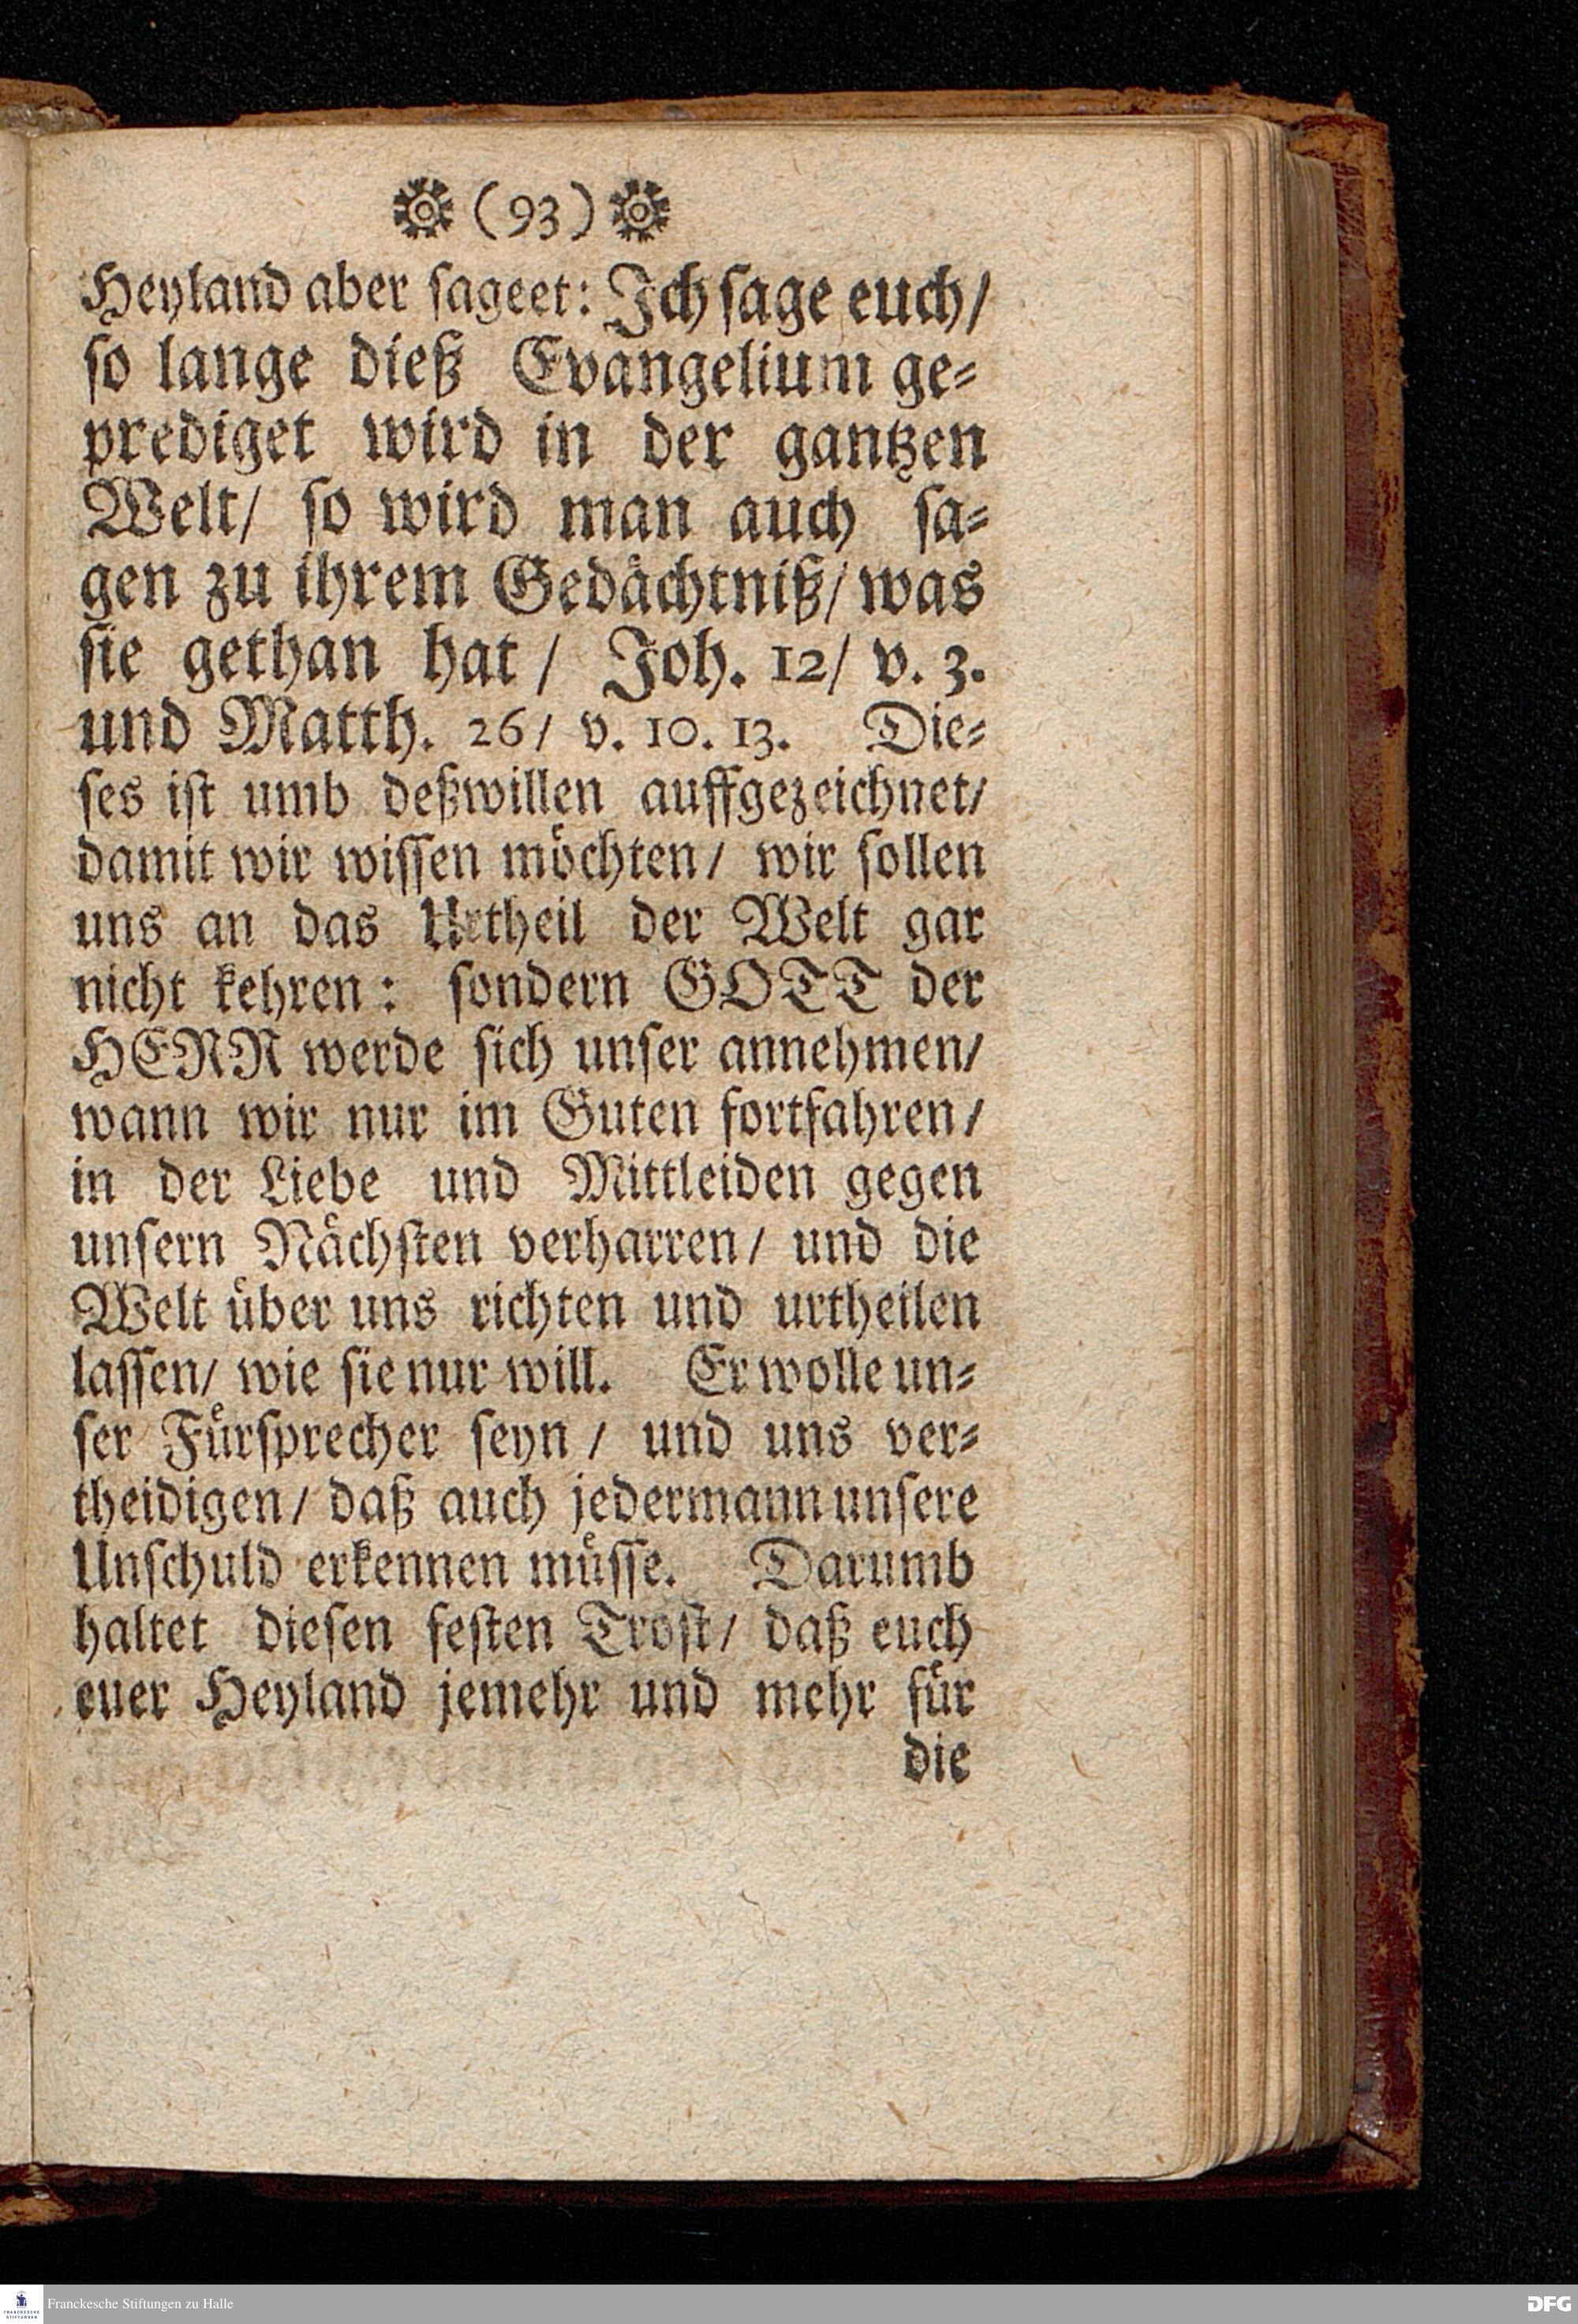 (93)
Heyland aber sageet: Ich sage euch/
so lange dieß Evangelium ge-
prediget wird in der gantzen
Welt/ so wird man auch sa-
gen zu ihrem Gedächtniß/ was
sie gethan hat/ Joh. 12/ v. 3.
und Matth. 26/ v. 10. 13. Die-
ses ist umb deßwillen auffgezeichnet/
damit wir wissen möchten/ wir sollen
uns an das Urtheil der Welt gar
nicht kehren: sondern GOTT der
HERR werde sich unser annehmen/
wann wir nur im Guten fortfahren/
in der Liebe und Mittleiden gegen
unsern Nächsten verharren/ und die
Welt über uns richten und urtheilen
lassen/ wie sie nur will. Er wolle un-
ser Fürsprecher seyn/ und uns ver-
theidigen/ daß auch jedermann unsere
Unschuld erkennen müsse. Darumb
haltet diesen festen Trost/ daß euch
euer Heyland jemehr und mehr für
die
Franckesche Stiftungen zu Halle
DFG